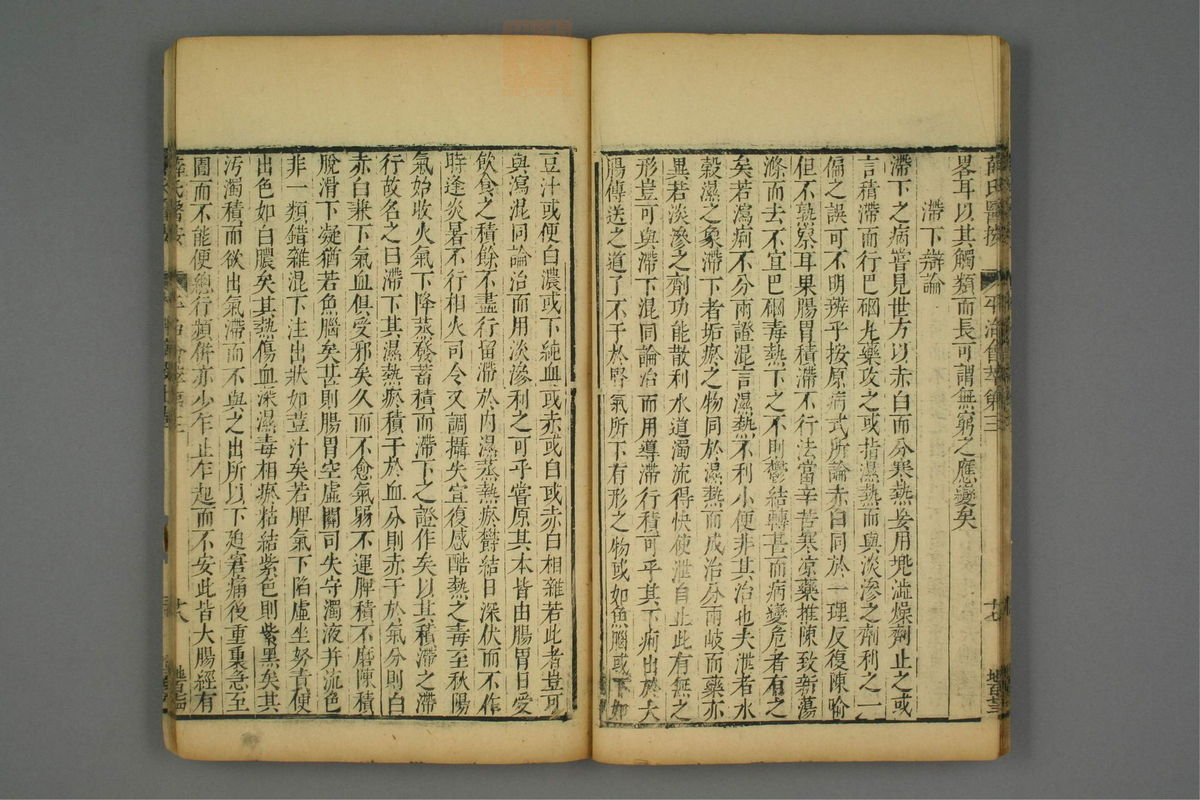 薛氏醫按 平治會萃卷三
畧耳以其觸類而長可謂無窮之應變矣
滯下辯論
滯下之病嘗見世方以赤白而分寒熱妄用兜澁燥劑止之或
言積滯而行巴硇丸藥攻之或指濕熱而與淡滲之劑利之一
偏之誤可不明辨乎按原病式所論赤白同於一理反復陳喻
但不熟察耳果腸胃積滯不行法當辛苦寒凉藥推陳致新蕩
滌而去不宜巴硇毒熱下之不則鬱結轉甚而病變危者有之
矣若瀉痢不分兩證混言濕熱不利小便非其治也夫泄者水
穀濕之象滯下者垢瘀之物同於濕熱而成治分兩岐而藥亦
異若淡滲之劑功能散利水道濁流得快使泄自止此有無之
形豈可與滯下混同論治而用導滯行積可乎其下痢出於大
腸傳送之道了不干於腎氣所下有形之物或如魚腦或下如
豆汁或便白濃或下純血或赤或白或赤白相雜若此者豈可
與瀉混同論治而用淡滲利之可乎嘗原其本皆由腸胃日受
飲食之積餘不盡行留滯於內濕蒸熱瘀欝結日深伏而不作
時逢炎暑不行相火司令又調攝失宜復感酷熱之毒至秋陽
氣始收火氣下降蒸發蓄積而滯下之證作矣以其積滯之滯
行故名之曰滯下其濕熱瘀積于於血分則赤于於氣分則白
赤白兼下氣血俱受邪矣久而不愈氣弱不運脾積不磨陳積
脫滑下凝猶若魚腦矣甚則腸胃空虛關司失守濁液并流色
非一類錯雜混下注出狀如荳汁矣若脾氣下陷虛坐努責便
出色如白膿矣其熱傷血深濕毒相瘀粘結紫色則紫黑矣其
污濁積而欲出氣滯而不與之出所以下迫窘痛後重裏急至
圊而不能便總行頻併亦少乍止乍起而不安此皆大腸經有